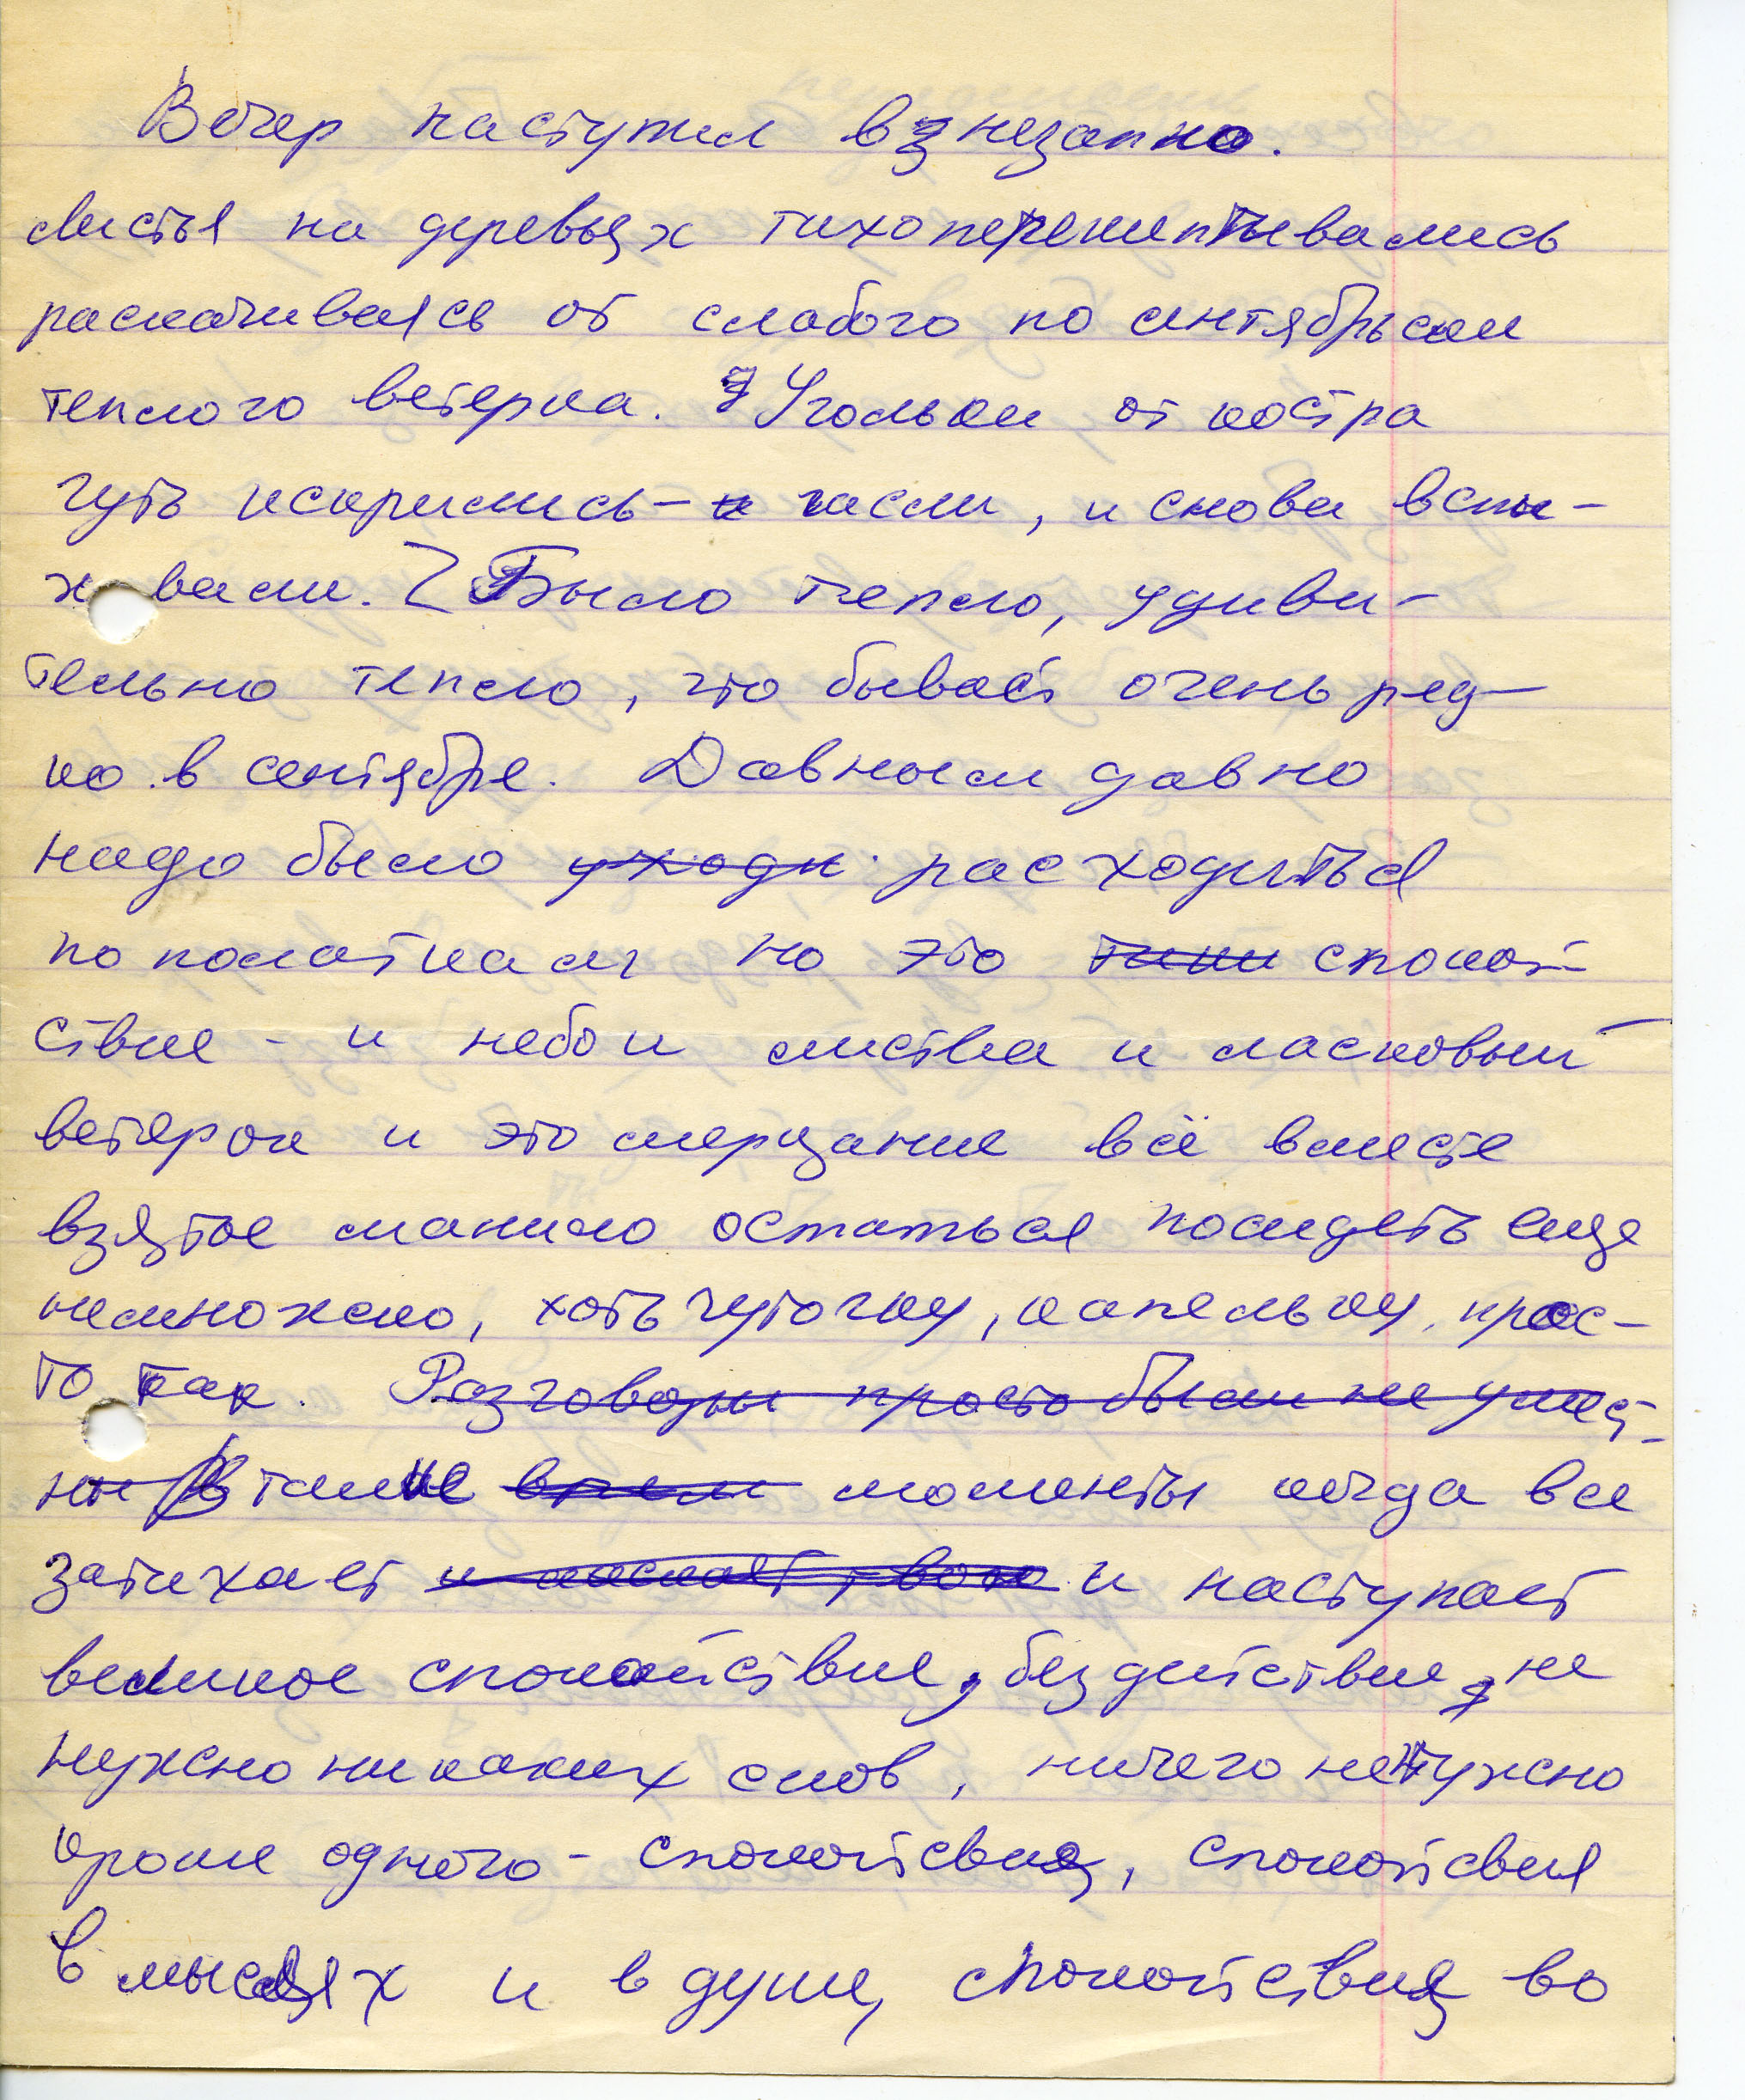 Вечер наступил внезапно.
Листья на деревьях тихо перешептывались
раскачиваясь от слабого по синтябрьски
теплого ветерка. Угольки от костра
чуть искрились – гасли, и снова вспы-
хивали. Было тепло, удиви-
тельно тепло, что бывает очень ред-
ко в сентябре. Давным давно
надо было уходи расходиться
по палаткам но это спокой-
ствие - и небо и листва и ласковый
ветерок и это мерцание всё вместе
взятое манило остаться посидеть еще
немножко, хоть чуточку, капельку, прос-
то так. Разговоры просто были не умест-
ны В такие врем моменты когда все
затихает и и наступает
великое спокойствие, бездействие, не
нужно никаких слов, ничего не нужно
кроме одного - спокойсвия, спокойсвия
в мыслях и в душе, спокойствия во